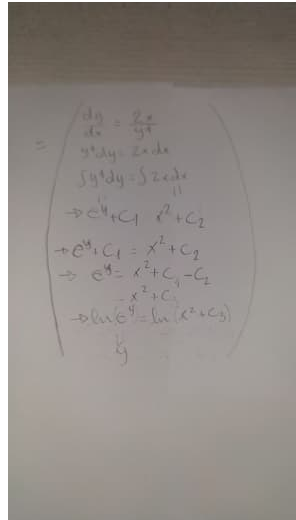 = dy/dx = 2x/y⁴
y⁴dy = 2x dx
∫y⁴dy = ∫2x dx
→ e^y + C₁ x² + C₂
→ e^y + C₁ = x² + C₂
→ e^y = x² + C₁ - C₂
= x² + C₃
→ ln(e^y = ln(x² + C₃)
y